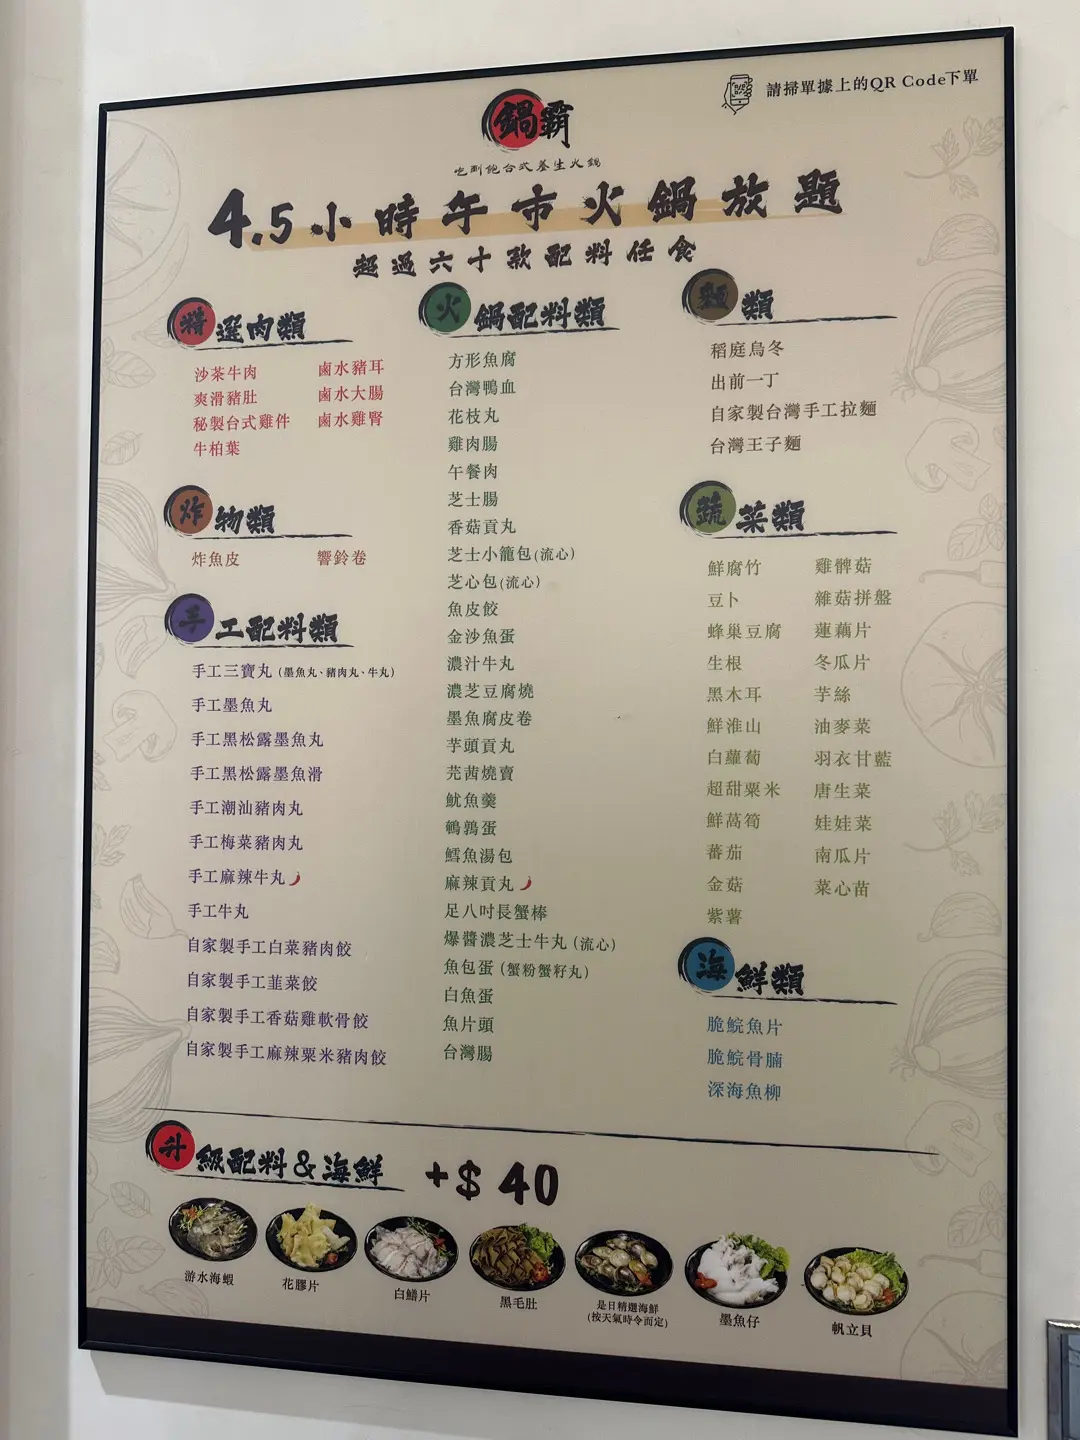 請掃單據上的QR Code下單
鍋霸
吃到飽台式養生火鍋
4.5小時午市火鍋放題
超過六十款配料任食
精選肉類
沙茶牛肉
爽滑豬肚
秘製台式雞件
牛柏葉
鹵水豬耳
鹵水大腸
鹵水雞腎
炸物類
炸魚皮
響鈴卷
手工配料類
手工三寶丸(墨魚丸、豬肉丸、牛丸)
手工墨魚丸
手工黑松露墨魚丸
手工黑松露墨魚滑
手工潮汕豬肉丸
手工梅菜豬肉丸
手工麻辣牛丸
手工牛丸
自家製手工白菜豬肉餃
自家製手工韮菜餃
自家製手工香菇雞軟骨餃
自家製手工麻辣粟米豬肉餃
火鍋配料類
方形魚腐
台灣鴨血
花枝丸
雞肉腸
午餐肉
芝士腸
香菇貢丸
芝士小籠包(流心)
芝心包(流心)
魚皮餃
金沙魚蛋
濃汁牛丸
濃芝豆腐燒
墨魚腐皮卷
芋頭貢丸
芫茜燒賣
魷魚羹
鵪鶉蛋
鱈魚湯包
麻辣貢丸
足八吋長蟹棒
爆醬濃芝士牛丸(流心)
魚包蛋(蟹粉蟹籽丸)
白魚蛋
魚片頭
台灣腸
麵類
稻庭烏冬
出前一丁
自家製台灣手工拉麵
台灣王子麵
蔬菜類
鮮腐竹
豆卜
蜂巢豆腐
生根
黑木耳
鮮淮山
白蘿蔔
超甜粟米
鮮萵筍
蕃茄
金菇
紫薯
雞髀菇
雜菇拼盤
蓮藕片
冬瓜片
芋絲
油麥菜
羽衣甘藍
唐生菜
娃娃菜
南瓜片
菜心苗
海鮮類
脆鯇魚片
脆鯇骨腩
深海魚柳
升級配料&海鮮 +$40
游水海蝦
花膠片
白鱔片
黑毛肚
是日精選海鮮
(按天氣時令而定)
墨魚仔
帆立貝